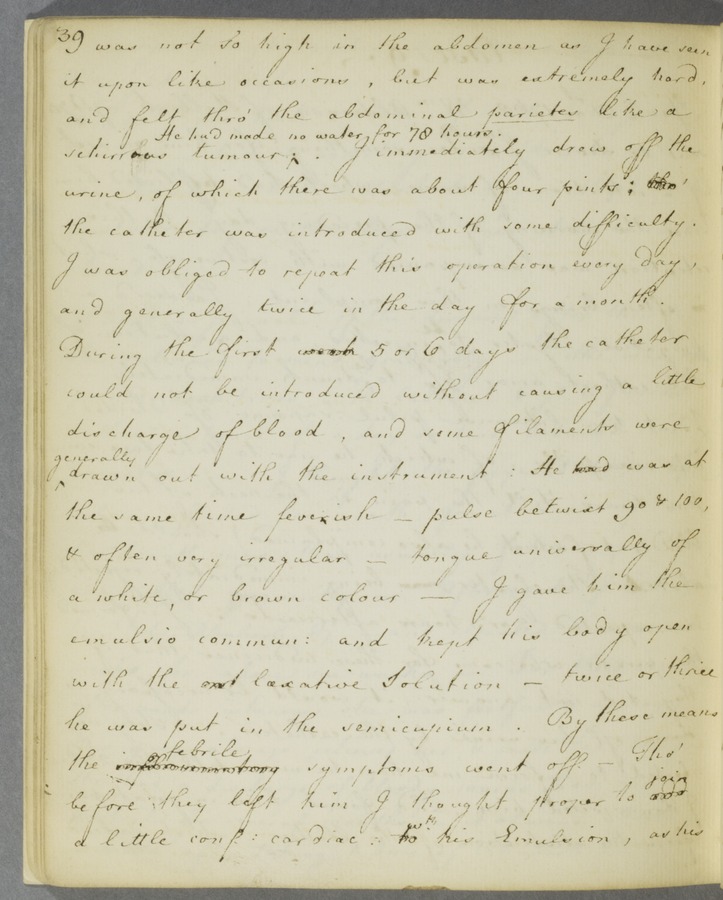 39 was not so high in the abdomen as I have seen
it upon like occasions, but was extremely hard,
and felt thro' the abdominal parietes like a
He had made no water, for 78 hours.
schirrous tumour; . I immediately drew off the
urine, of which there was about four pints: tho'
the catheter was introduced with some difficulty.
I was obliged to repeat this operation every day,
and generally twice in the day for a month.
During the first week 5 or 6 days the catheter
could not be introduced without causing a little
discharge of blood, and some filaments were
generally
drawn out with the instrument: He had was at
the same time feverish — pulse betwixt 90 & 100,
& often very irregular — tongue universally of
a white, or brown colour — I gave him the
emulsio commun: and kept his body open
with the laxative Solution — twice or thrice
he was put in the semicupium. By these means
febrile
the inflammatory symptoms went off — Tho'
join
before they left him I thought proper to add
wth
a little conf: cardiac: to his Emulsion, as his